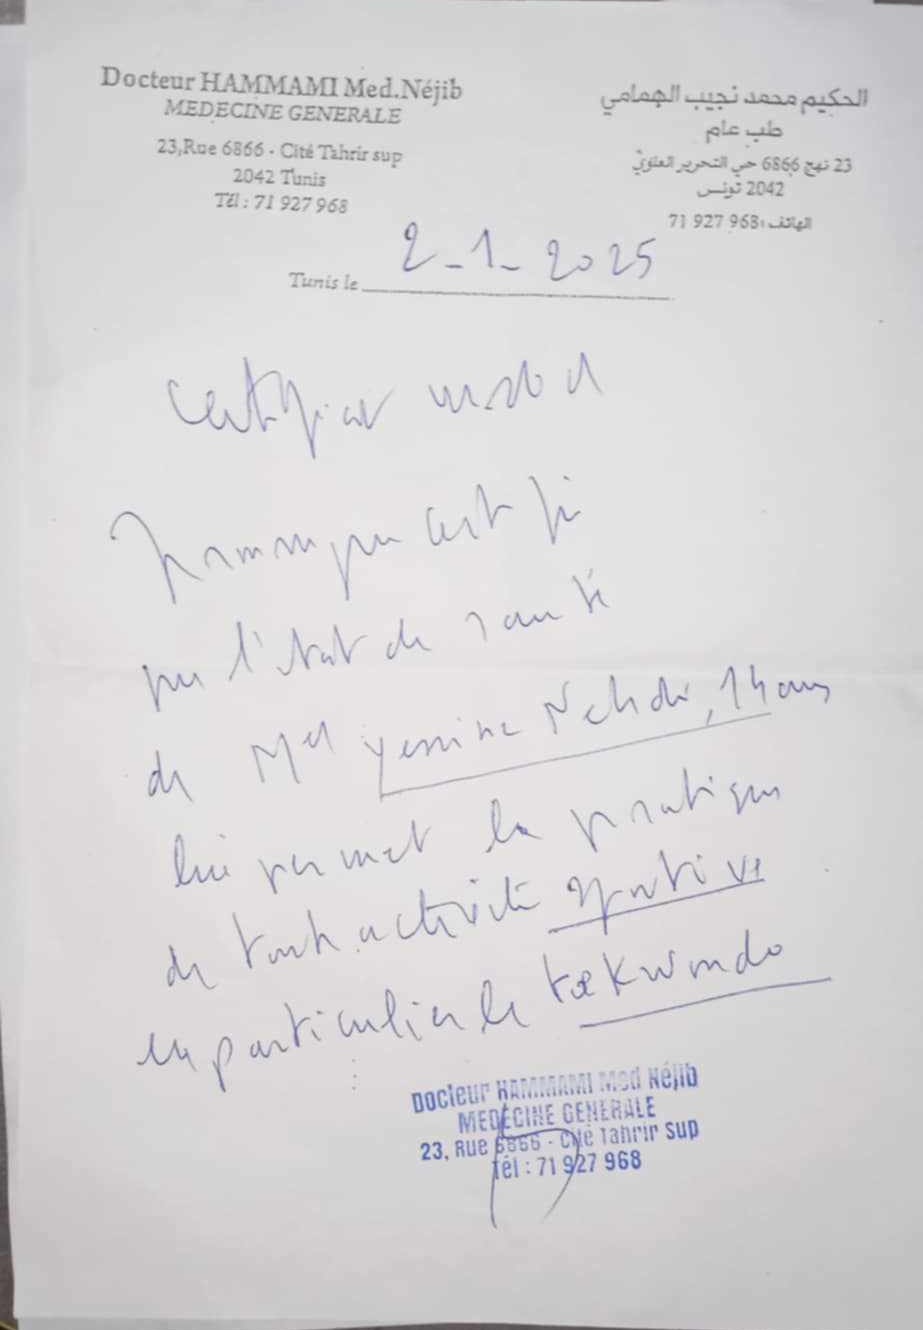 Docteur HAMMAMI Med.Néjib
MEDECINE GENERALE
23,Rue 6866 - Cité Tahrir sup
2042 Tunis
Tél : 71 927 968
الحكيم محمد نجيب الهمامي
طب عام
23 نهج 6866 حي التحرير العلوي
2042 تونس
الهاتف : 71 927 968
Tunis le 2-1-2025
Certificat médical
certifie
que l'état de santé
de Mel Yessine Mehdi, 14 ans
lui permet la pratique
de toute activité sportive
en particulier le taekwondo
Docteur HAMMAMI Med Néjib
MEDECINE GENERALE
23, Rue 6866 - Cité Tahrir sup
Tél : 71 927 968